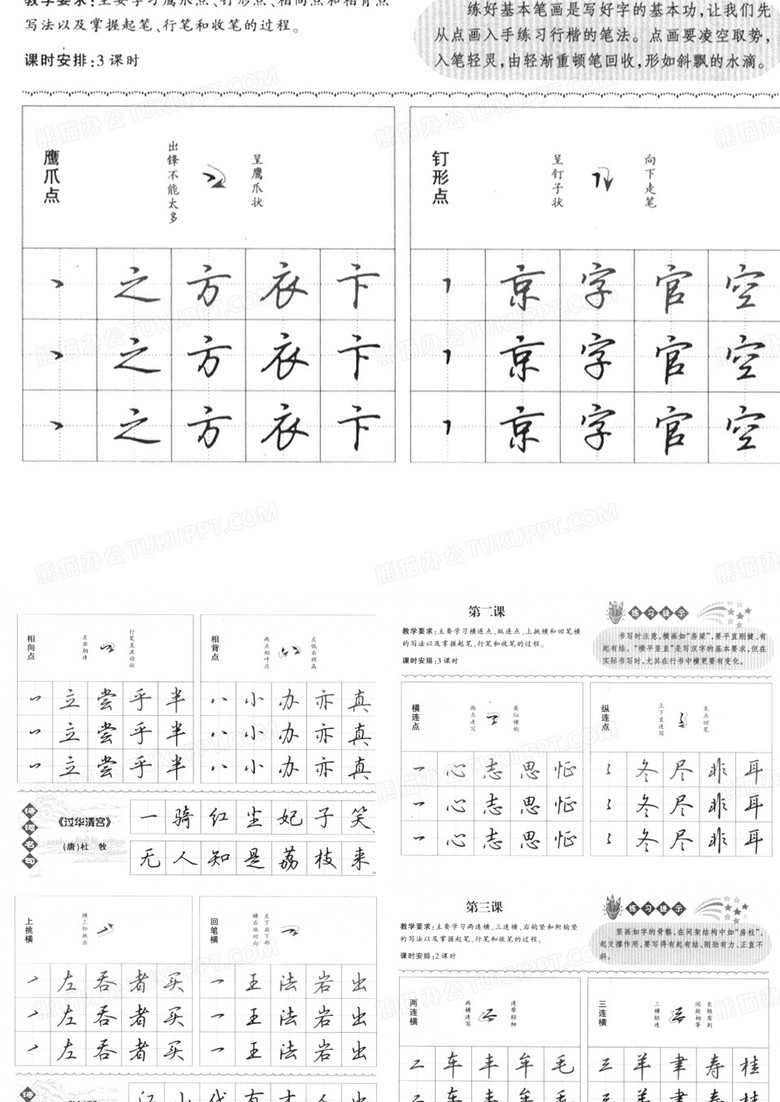 教学要求：主要学习鹰爪点、钉形点、相向点和相背点
写法以及掌握起笔、行笔和收笔的过程。
课时安排：3课时
练好基本笔画是写好字的基本功，让我们先
从点画入手练习行楷的笔法。点画要凌空取势，
入笔轻灵，由轻渐重顿笔回收，形如斜飘的水滴。
鹰爪点
出锋不能太多
呈鹰爪状
之方衣卞
之方衣卞
之方衣卞
钉形点
呈钉子状
向下走笔
京字官空
京字官空
京字官空
熊猫办公 TUKUPPT.COM
相向点
左右相连
行笔直流动议
立尝乎半
立尝乎半
立尝乎半
相背点
两点相呼应
左低右稍高
八小办亦真
八小办亦真
八小办亦真
诗词名句
《过华清宫》
(唐)杜 牧
一骑红尘妃子笑
无人知是荔枝来
第二课
教学要求：主要学习横连点、纵连点、上挑横和回笔横
的写法以及掌握起笔、行笔和收笔的过程。
课时安排：3课时
练习提示
书写时注意，横画如“房梁”，要平直刚健、有
起有结。“横平竖直”是写汉字的基本要求，但在
实际书写时，尤其在行书中横更要有变化。
横连点
两点连写
类似横的
心志思怔
心志思怔
心志思怔
纵连点
上下直连写
末点回笔
冬尽非耳
冬尽非耳
冬尽非耳
上挑横
横上钞挑出
左吞者买
左吞者买
左吞者买
回笔横
横右端回向
左下启下部
一王法岩出
一王法岩出
一王法岩出
第三课
教学要求：主要学习两连横、三连横、右钩竖和附钩竖
的写法以及掌握起笔、行笔和收笔的过程。
课时安排：2课时
练习提示
竖画如字的骨骼，在间架结构中如“房柱”，
起支撑作用，要写得有起有结、刚劲有力、正直不
斜。
两连横
两横连写
连带轻细
车丰牟毛
三连横
三横轻连
长短有别
间距相等
三羊聿寿桂